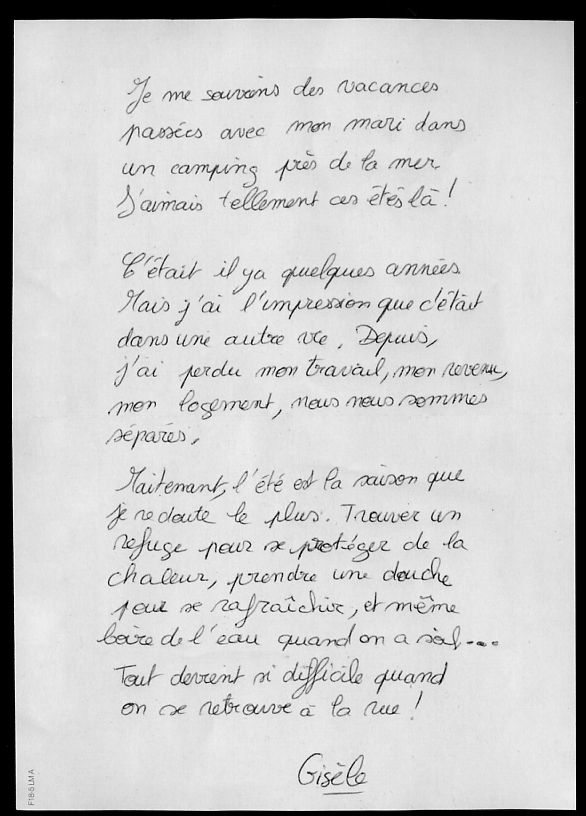 Je me souviens des vacances
passées avec mon mari dans
un camping près de la mer
J'aimais tellement ces étés là !
C'était il y a quelques années
Mais j'ai l'impression que c'était
dans une autre vie. Depuis,
j'ai perdu mon travail, mon revenu,
mon logement, nous nous sommes
séparés,
Maitenant, l'été est la saison que
je redoute le plus. Trouver un
refuge pour se protéger de la
chaleur, prendre une douche
pour se rafraîchir, et même
boire de l'eau quand on a soif....
Tout devient si difficile quand
on se retrouve à la rue !
Gisèle
F18-5 LMA